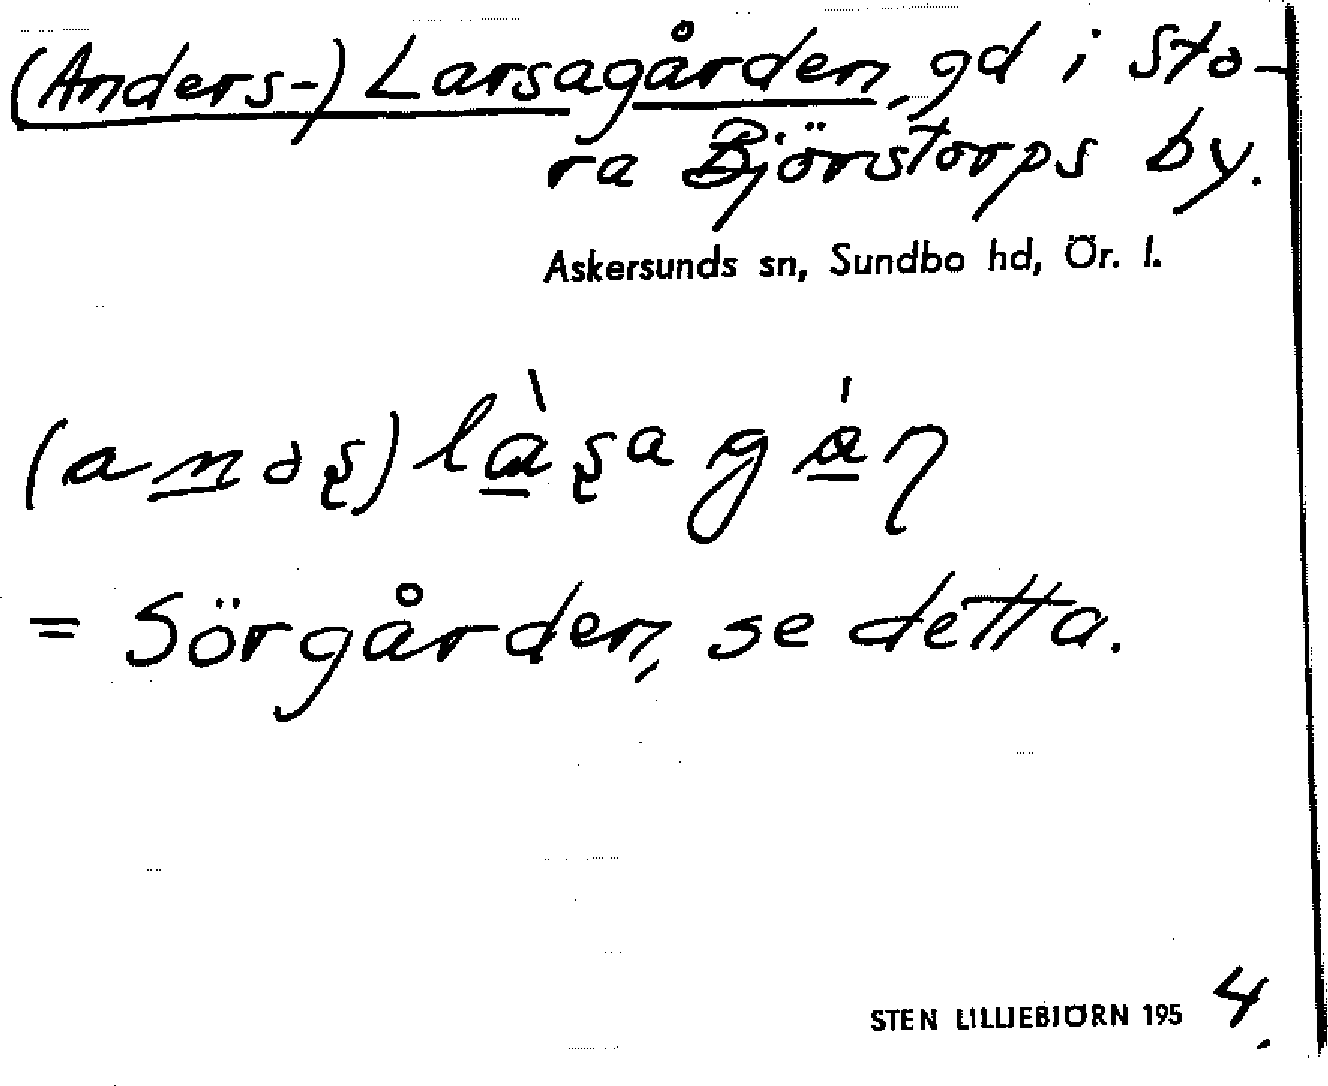 (Anders-) Larsagården, gd i Sto-
ra Björstorps by.
Askersunds sn, Sundbo hd, Ör. l.
= Sörgården, se detta.
STEN LILLIEBJÖRN 1954.